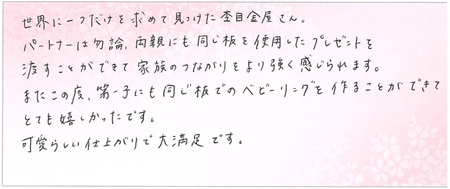 世界に一つだけを求めて見つけた杢目金屋さん。
パートナーは勿論、両親にも同じ板を使用したプレゼントを
渡すことができて家族のつながりをより強く感じられます。
またこの度、第一子にも同じ板でのベビーリングを作ることができて
とても嬉しかったです。
可愛らしい仕上がりで大満足です。